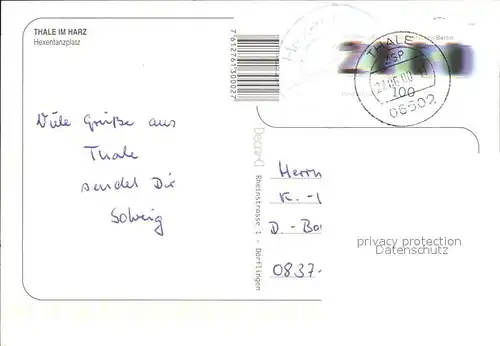 THALE IM HARZ
Hexentanzplatz
Viele Grüße aus
Thale
sendet Dir
Solveig
7612761300027
Rheinstrasse 1 - Dörflingen
THALE
27.06.00
100
06502
Berlin
Herrn
K. -
D. - Bo
0837-
privacy protection
Datenschutz